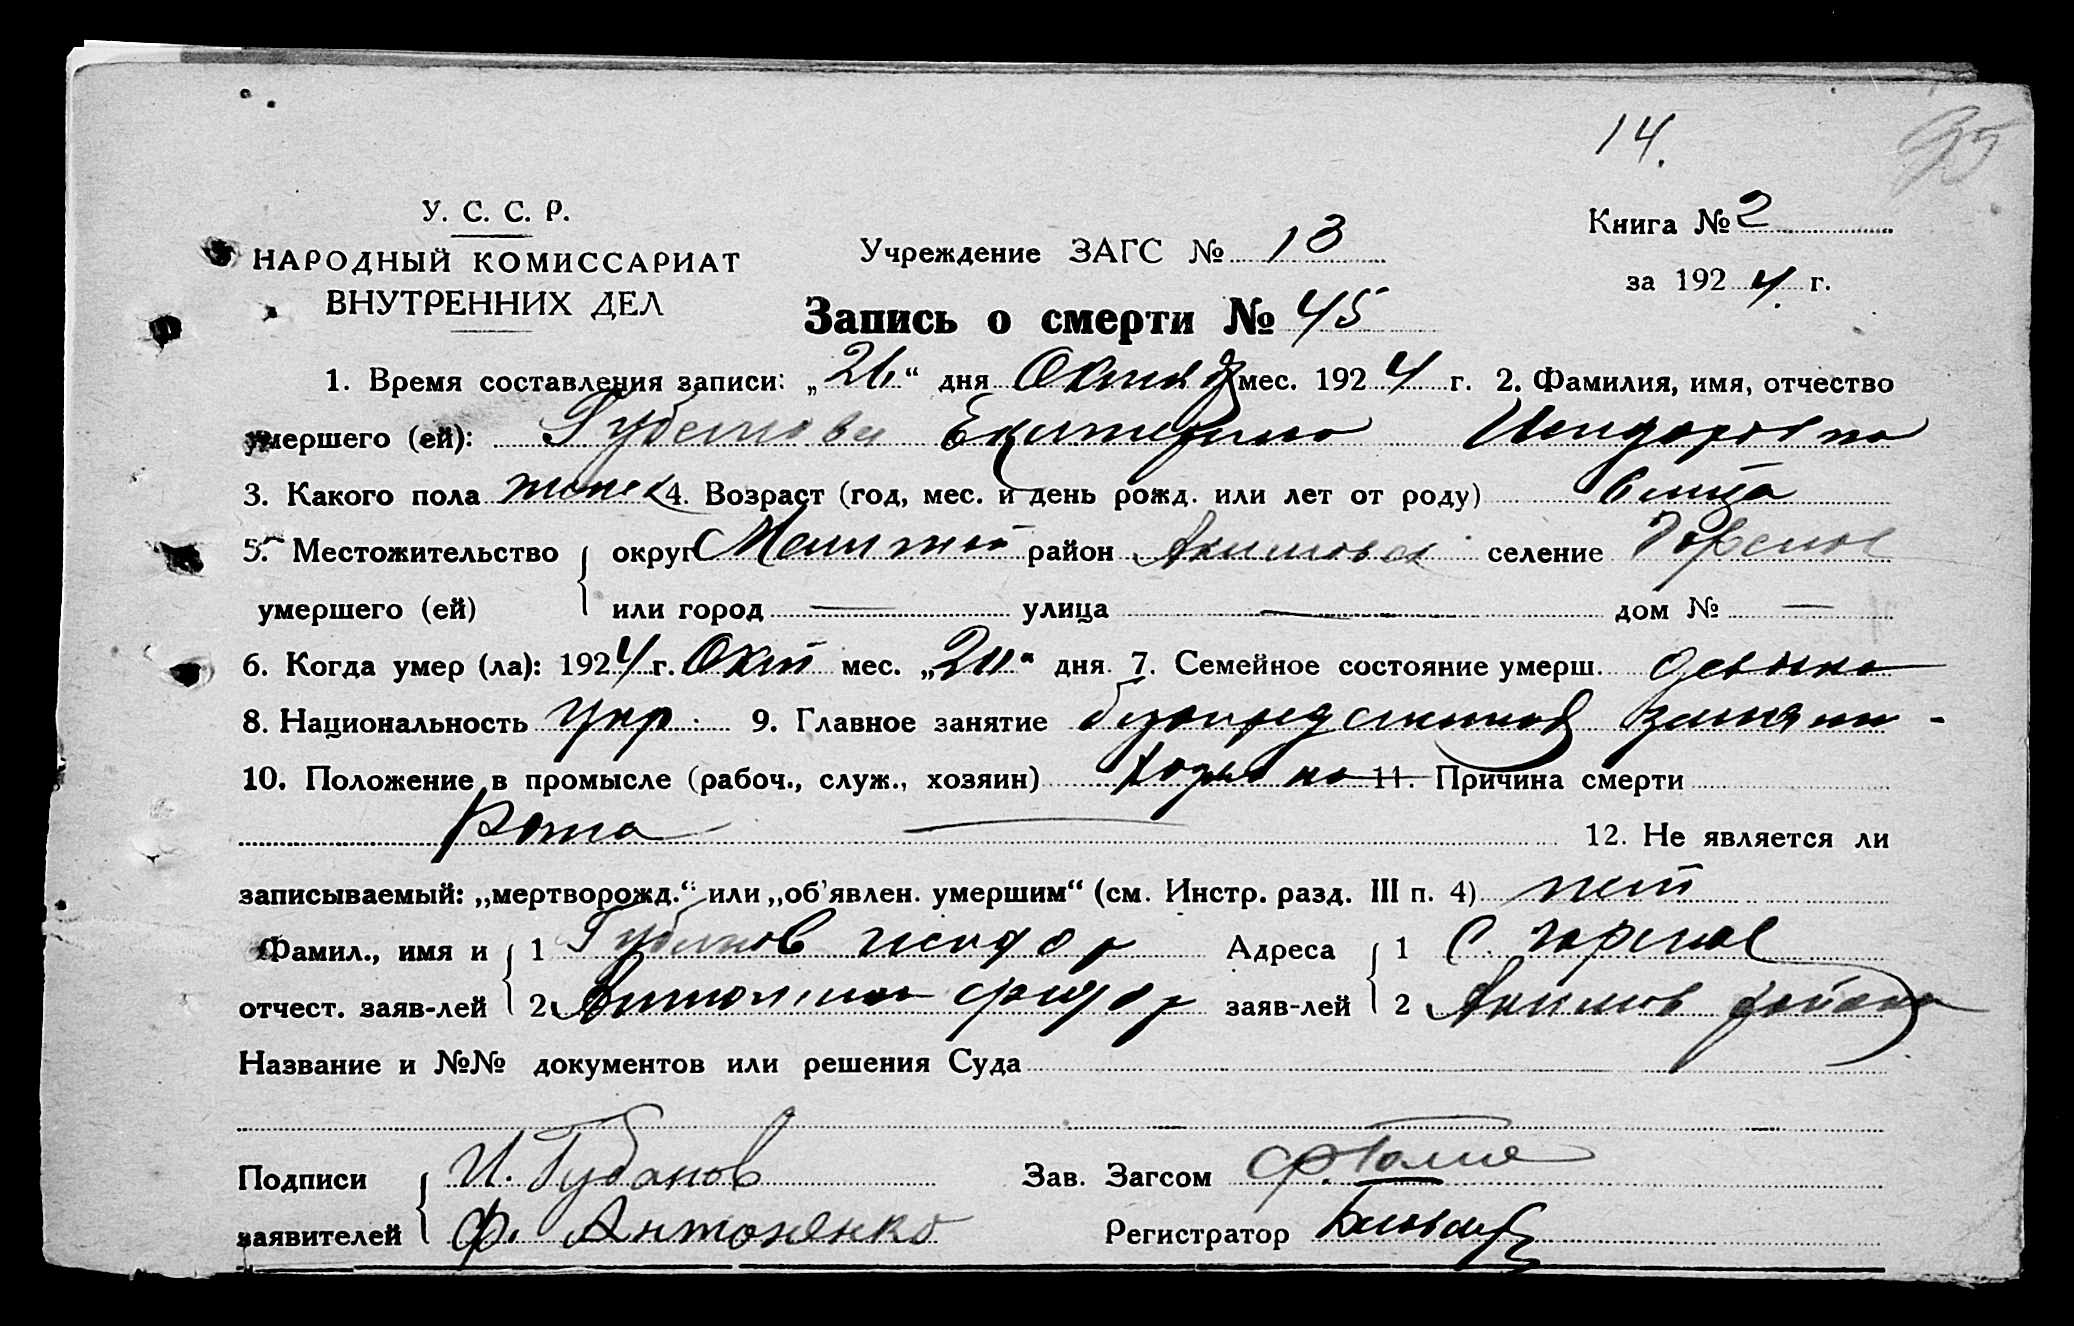 14. 95
У. С. С. Р.
НАРОДНЫЙ КОМИССАРИАТ
ВНУТРЕННИХ ДЕЛ
Учреждение ЗАГС № 13
Книга № 2
за 1924 г.
Запись о смерти № 45
1. Время составления записи: „26“ дня Октяб мес. 1924 г. 2. Фамилия, имя, отчество
умершего (ей): Губанова Екатерина Исидоровна
3. Какого пола женск 4. Возраст (год, мес. и день рожд. или лет от роду) 6 м-ца
5. Местожительство округ Мелит-кий район Акимовск селение Горелое
умершего (ей) или город — улица — дом № —
6. Когда умер (ла): 1924 г. Окт мес. „ “ дня. 7. Семейное состояние умерш. девика
8. Национальность Укр. 9. Главное занятие занятие -
10. Положение в промысле (рабоч., служ., хозяин) 11. Причина смерти
12. Не является ли
записываемый: „мертворожд.“ или „об'явлен. умершим“ (см. Инстр. разд. III п. 4) нет
Фамил., имя и 1 Губанов исидор Адреса 1 С. горелое
отчест. заяв-лей 2 Антоненко фидор заяв-лей 2 Акимов района
Название и №№ документов или решения Суда
Подписи И. Губанов Зав. Загсом
заявителей Ф. Антоненко Регистратор